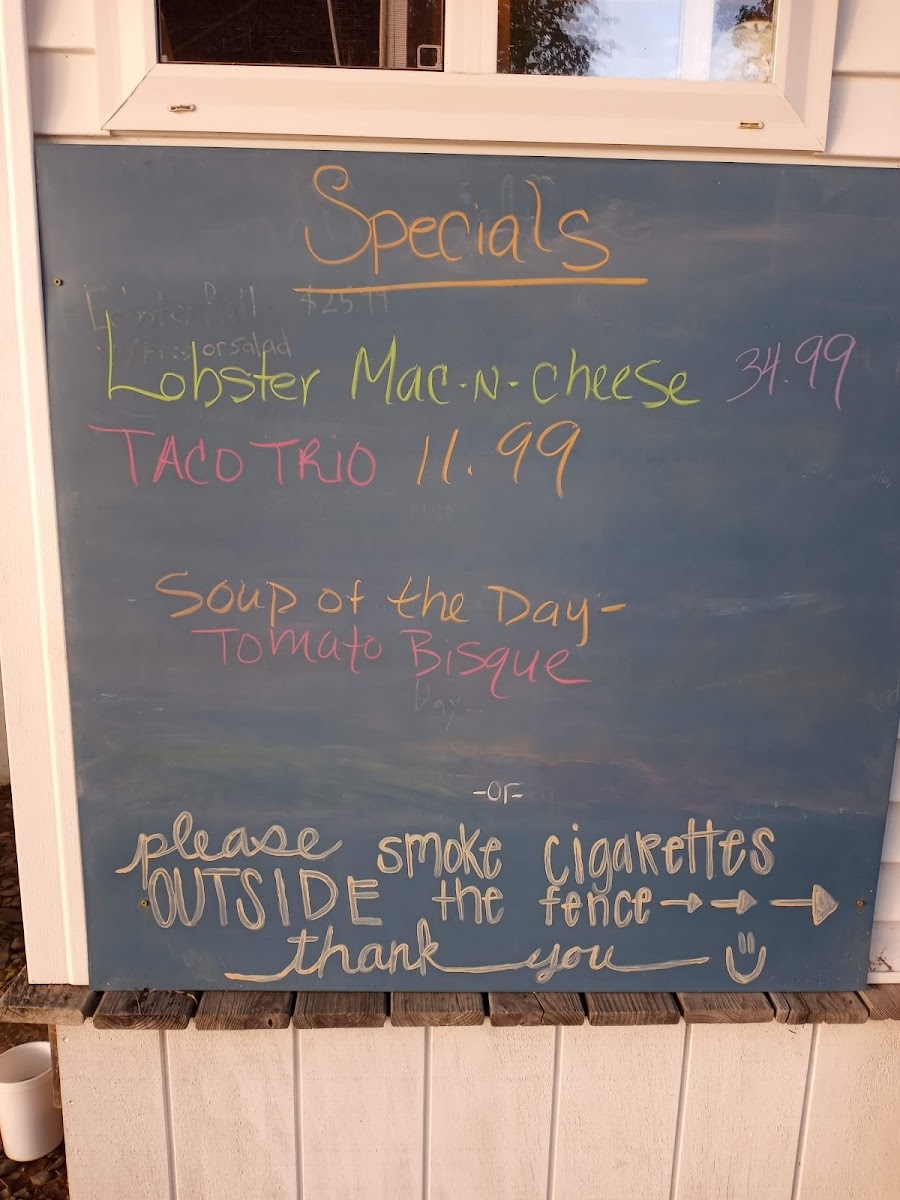 Specials
Lobster Roll $25.99
or salad
Lobster Mac-N-Cheese 34.99
TACO TRIO 11.99
Soup of the Day-
Tomato Bisque
Day-
-or-
please smoke cigarettes
OUTSIDE the fence→→→
thank you